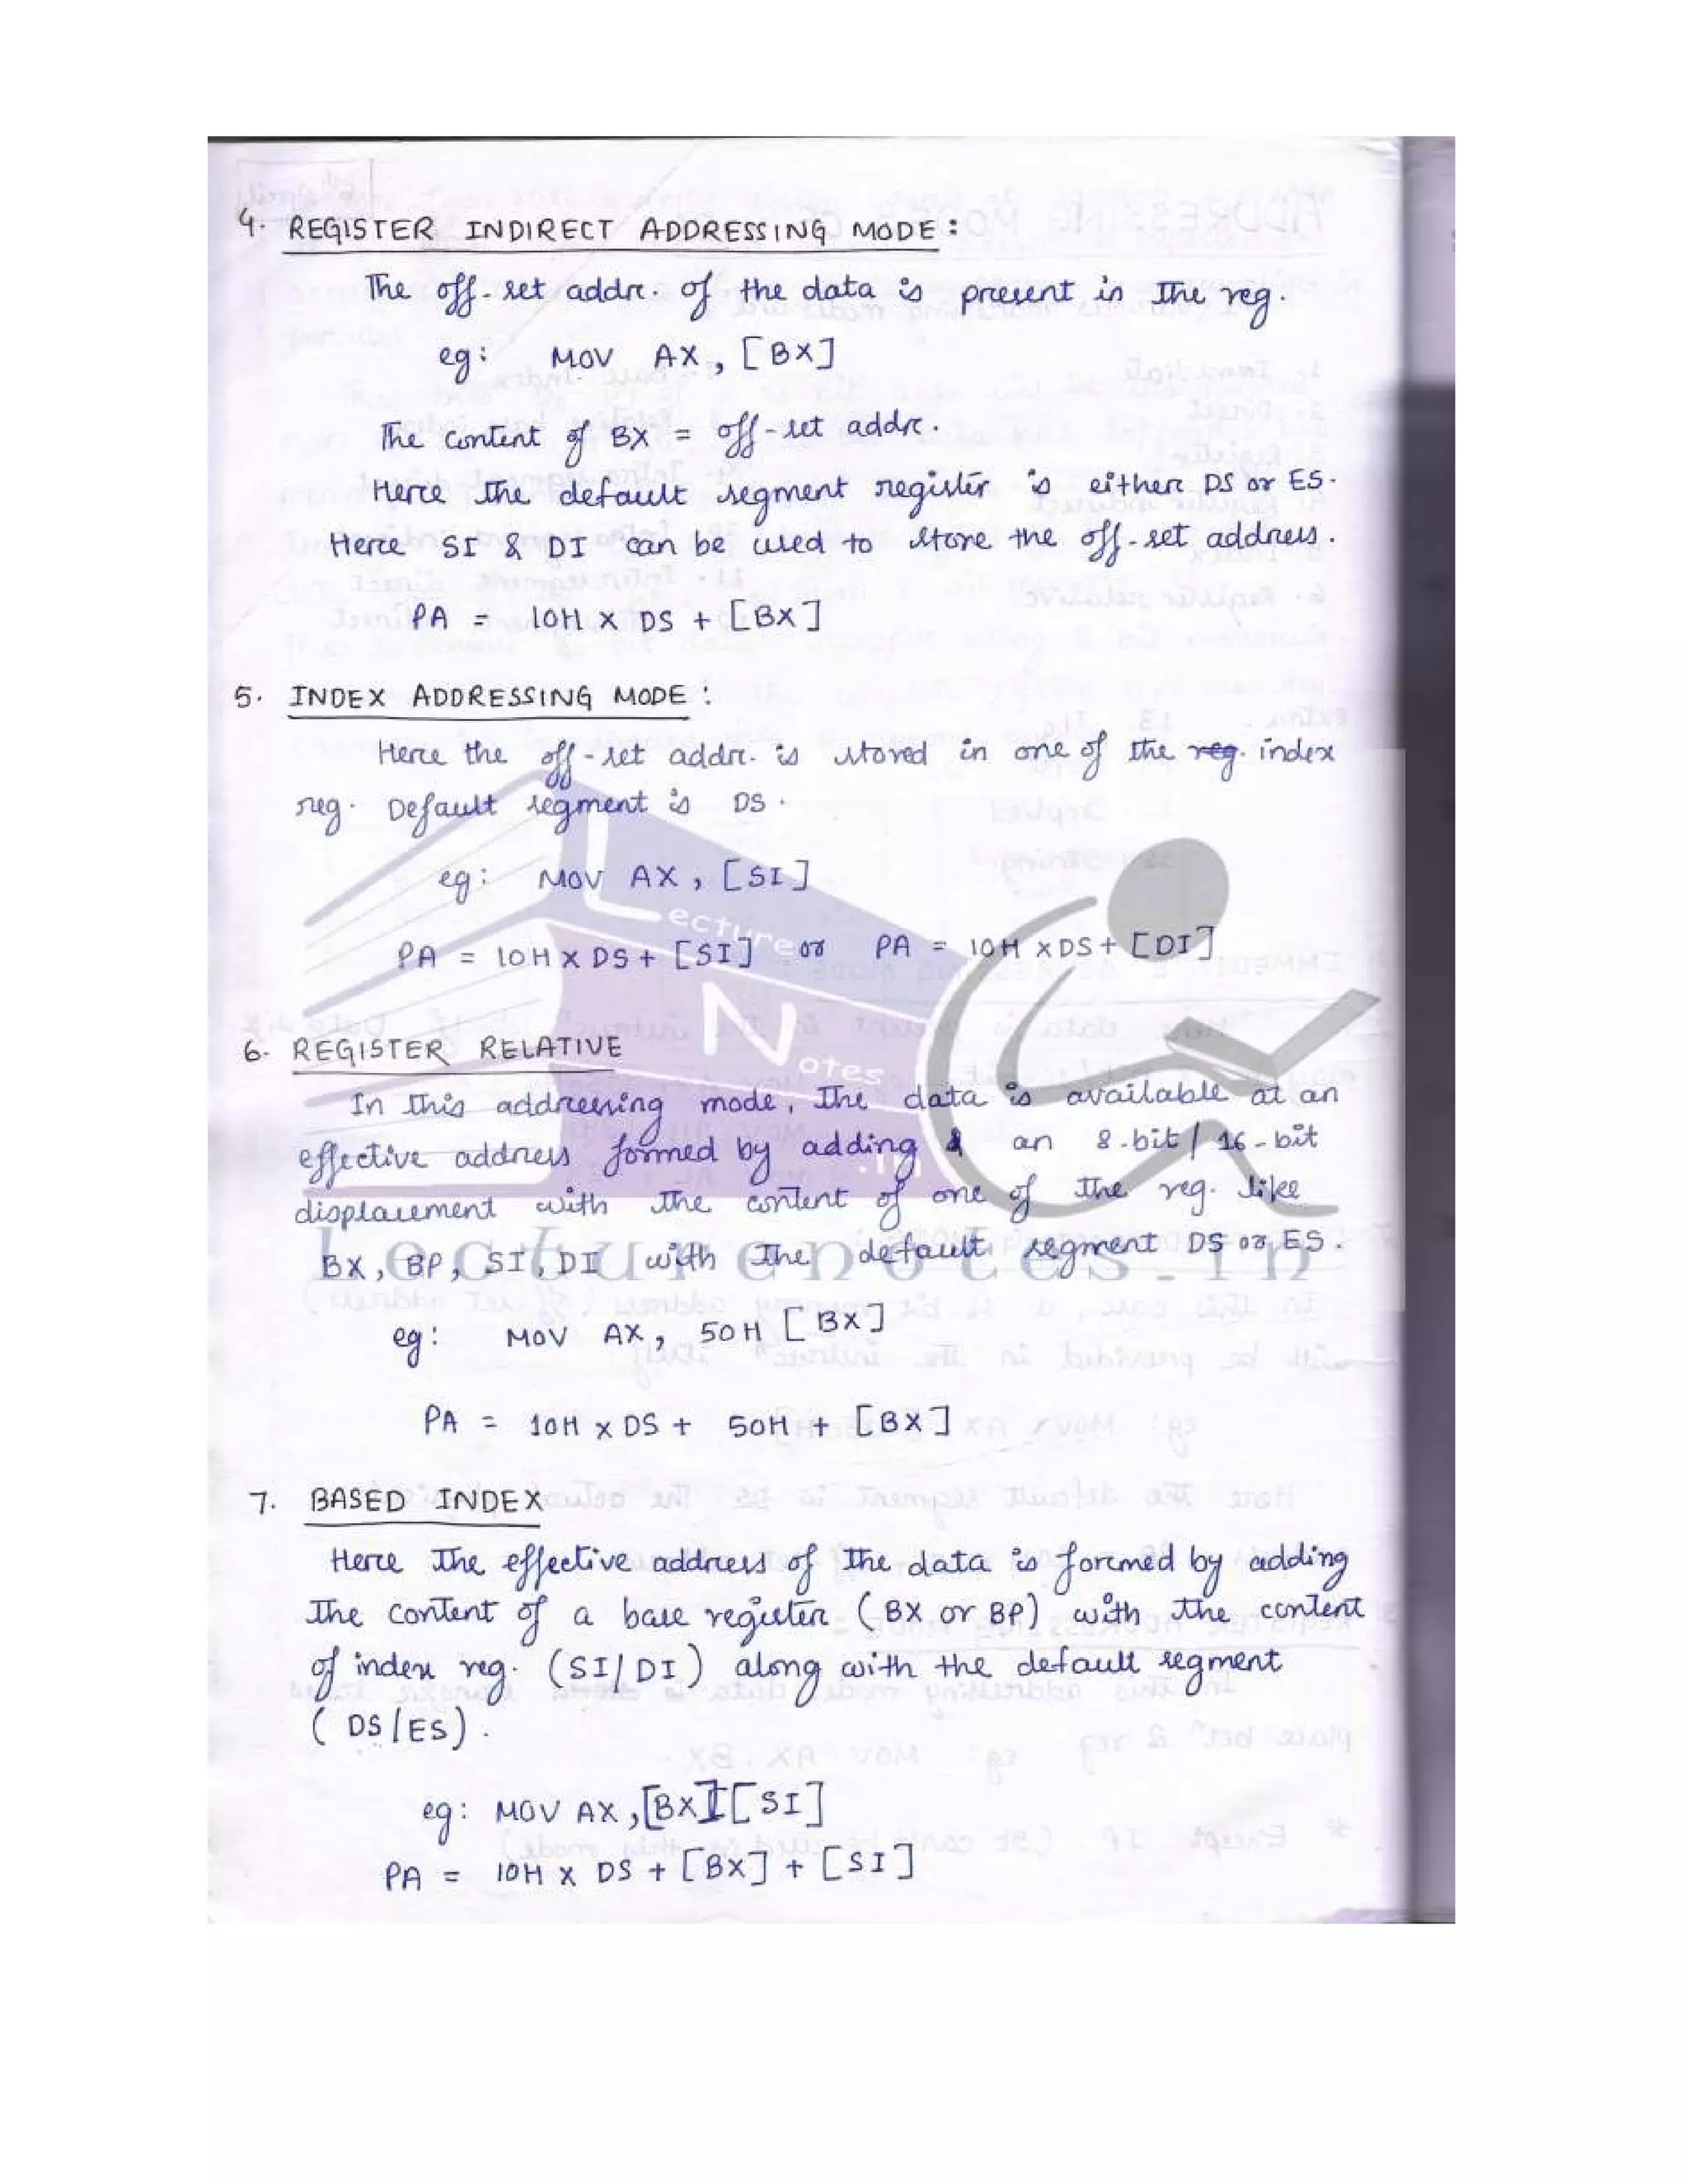 4. REGISTER INDIRECT ADDRESSING MODE :
The off-set addr. of the data is present in the reg.
eg: MOV AX, [BX]
The content of BX = off-set addr.
Here the default segment register is either DS or ES.
Here SI & DI can be used to store the off-set address.
PA = 10H X DS + [BX]
5. INDEX ADDRESSING MODE :
Here the off-set addr. is stored in one of the reg. index
reg. Default segment is DS.
eg: MOV AX, [SI]
PA = 10H X DS + [SI] or PA = 10H X DS + [DI]
6. REGISTER RELATIVE
In this addressing mode, the data is available at an
effective address formed by adding an 8-bit/16-bit
displacement with the content of one of the reg. like
BX, BP, SI, DI with the default segment DS or ES.
eg: MOV AX, 50H [BX]
PA = 10H X DS + 50H + [BX]
7. BASED INDEX
Here the effective address of the data is formed by adding
the content of a base register (BX or BP) with the content
of index reg. (SI/DI) along with the default segment
(DS/ES).
eg: MOV AX,[BX][SI]
PA = 10H X DS + [BX] + [SI]
Lecture
Notes
.in
Lecturenotes.in